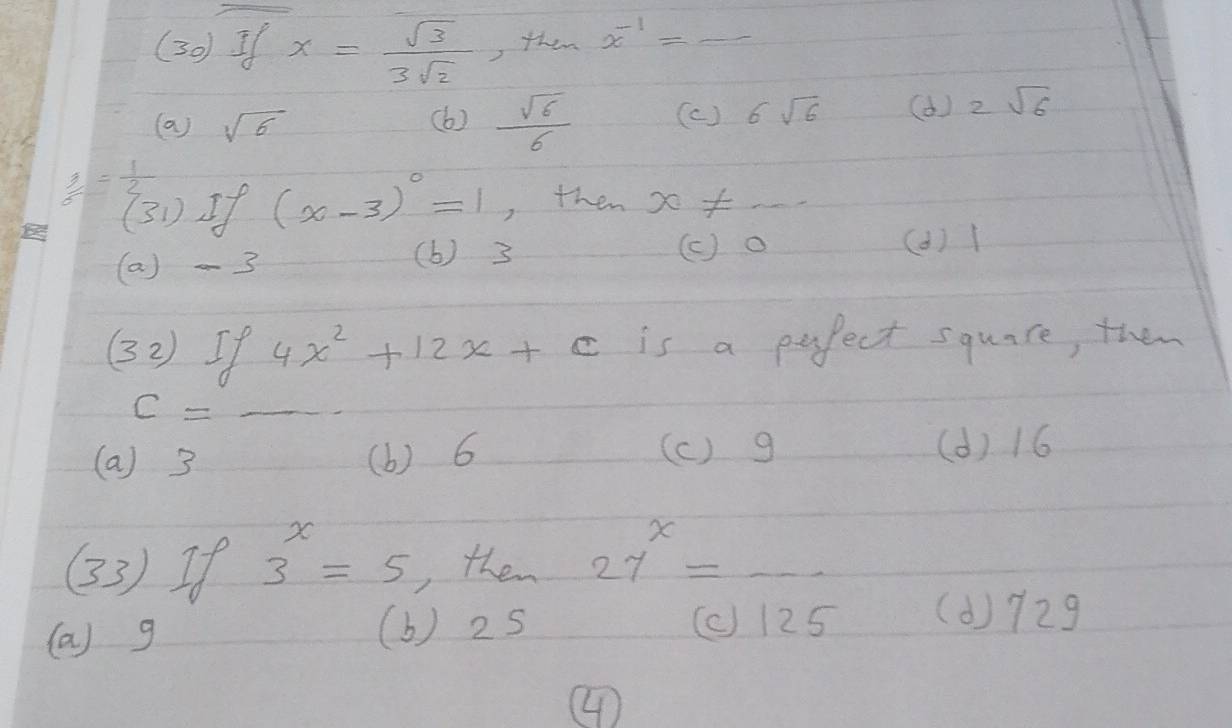 (30) If x = √3 / 3√2, then x⁻¹ = —
(a) √6 (b) √6 / 6 (c) 6√6 (d) 2√6
= 1/2
(31) If (x-3)⁰ = 1, then x ≠ ---
(a) -3 (b) 3 (c) 0 (d) 1
(32) If 4x² + 12x + C is a perfect square, then
C = ----
(a) 3 (b) 6 (c) 9 (d) 16
(33) If 3ˣ = 5, then 27ˣ = ----
(a) 9 (b) 25 (c) 125 (d) 729
(4)